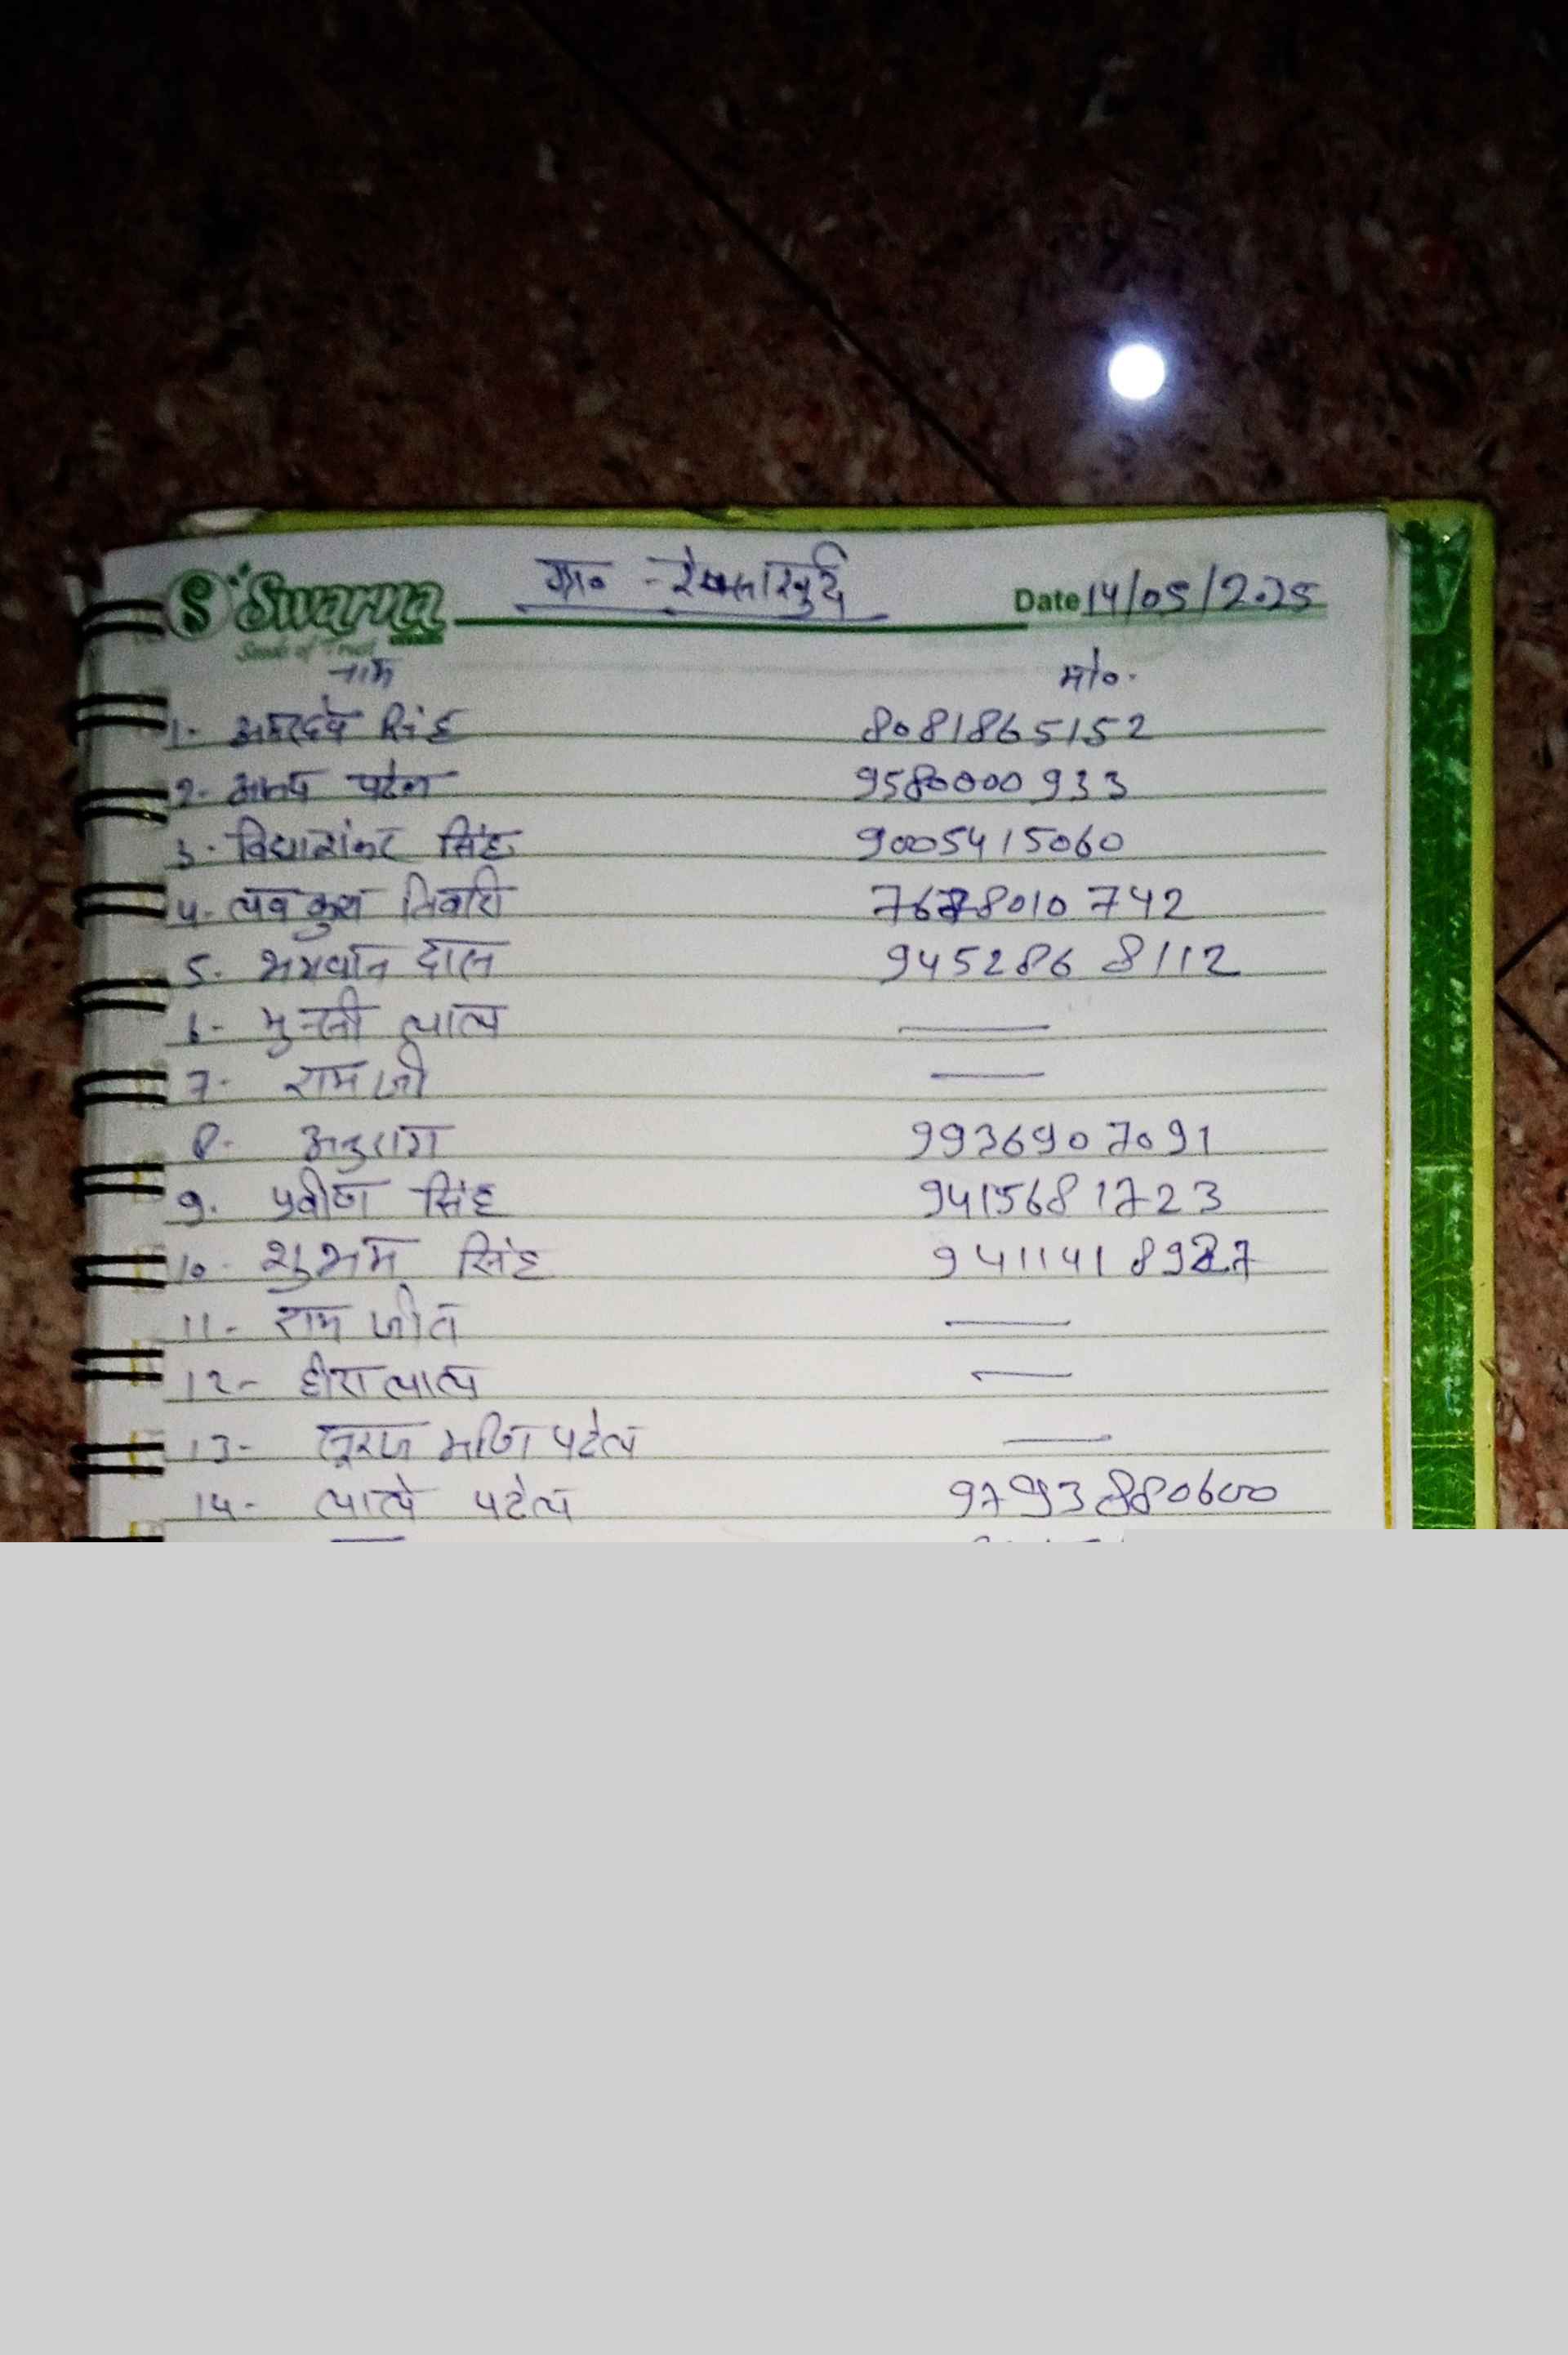 Swarna
Seeds of Trust
ग्रा० - खुर्द
Date 14/05/2025
नाम मो०.
1- सिंह 8081865152
2- पटेल 9580000933
3- विद्याशंकर सिंह 9005415060
4- लवकुश तिवारी 010742
5- भगवान दास 9452868112
6- मुन्नी लाल —
7- रामजी —
8- अनुराग 9936907091
9. प्रवीण सिंह 9415681723
10- शुभम सिंह
11- राम जीत —
12- हीरालाल —
13- सूरज मणि पटेल —
14- पटेल